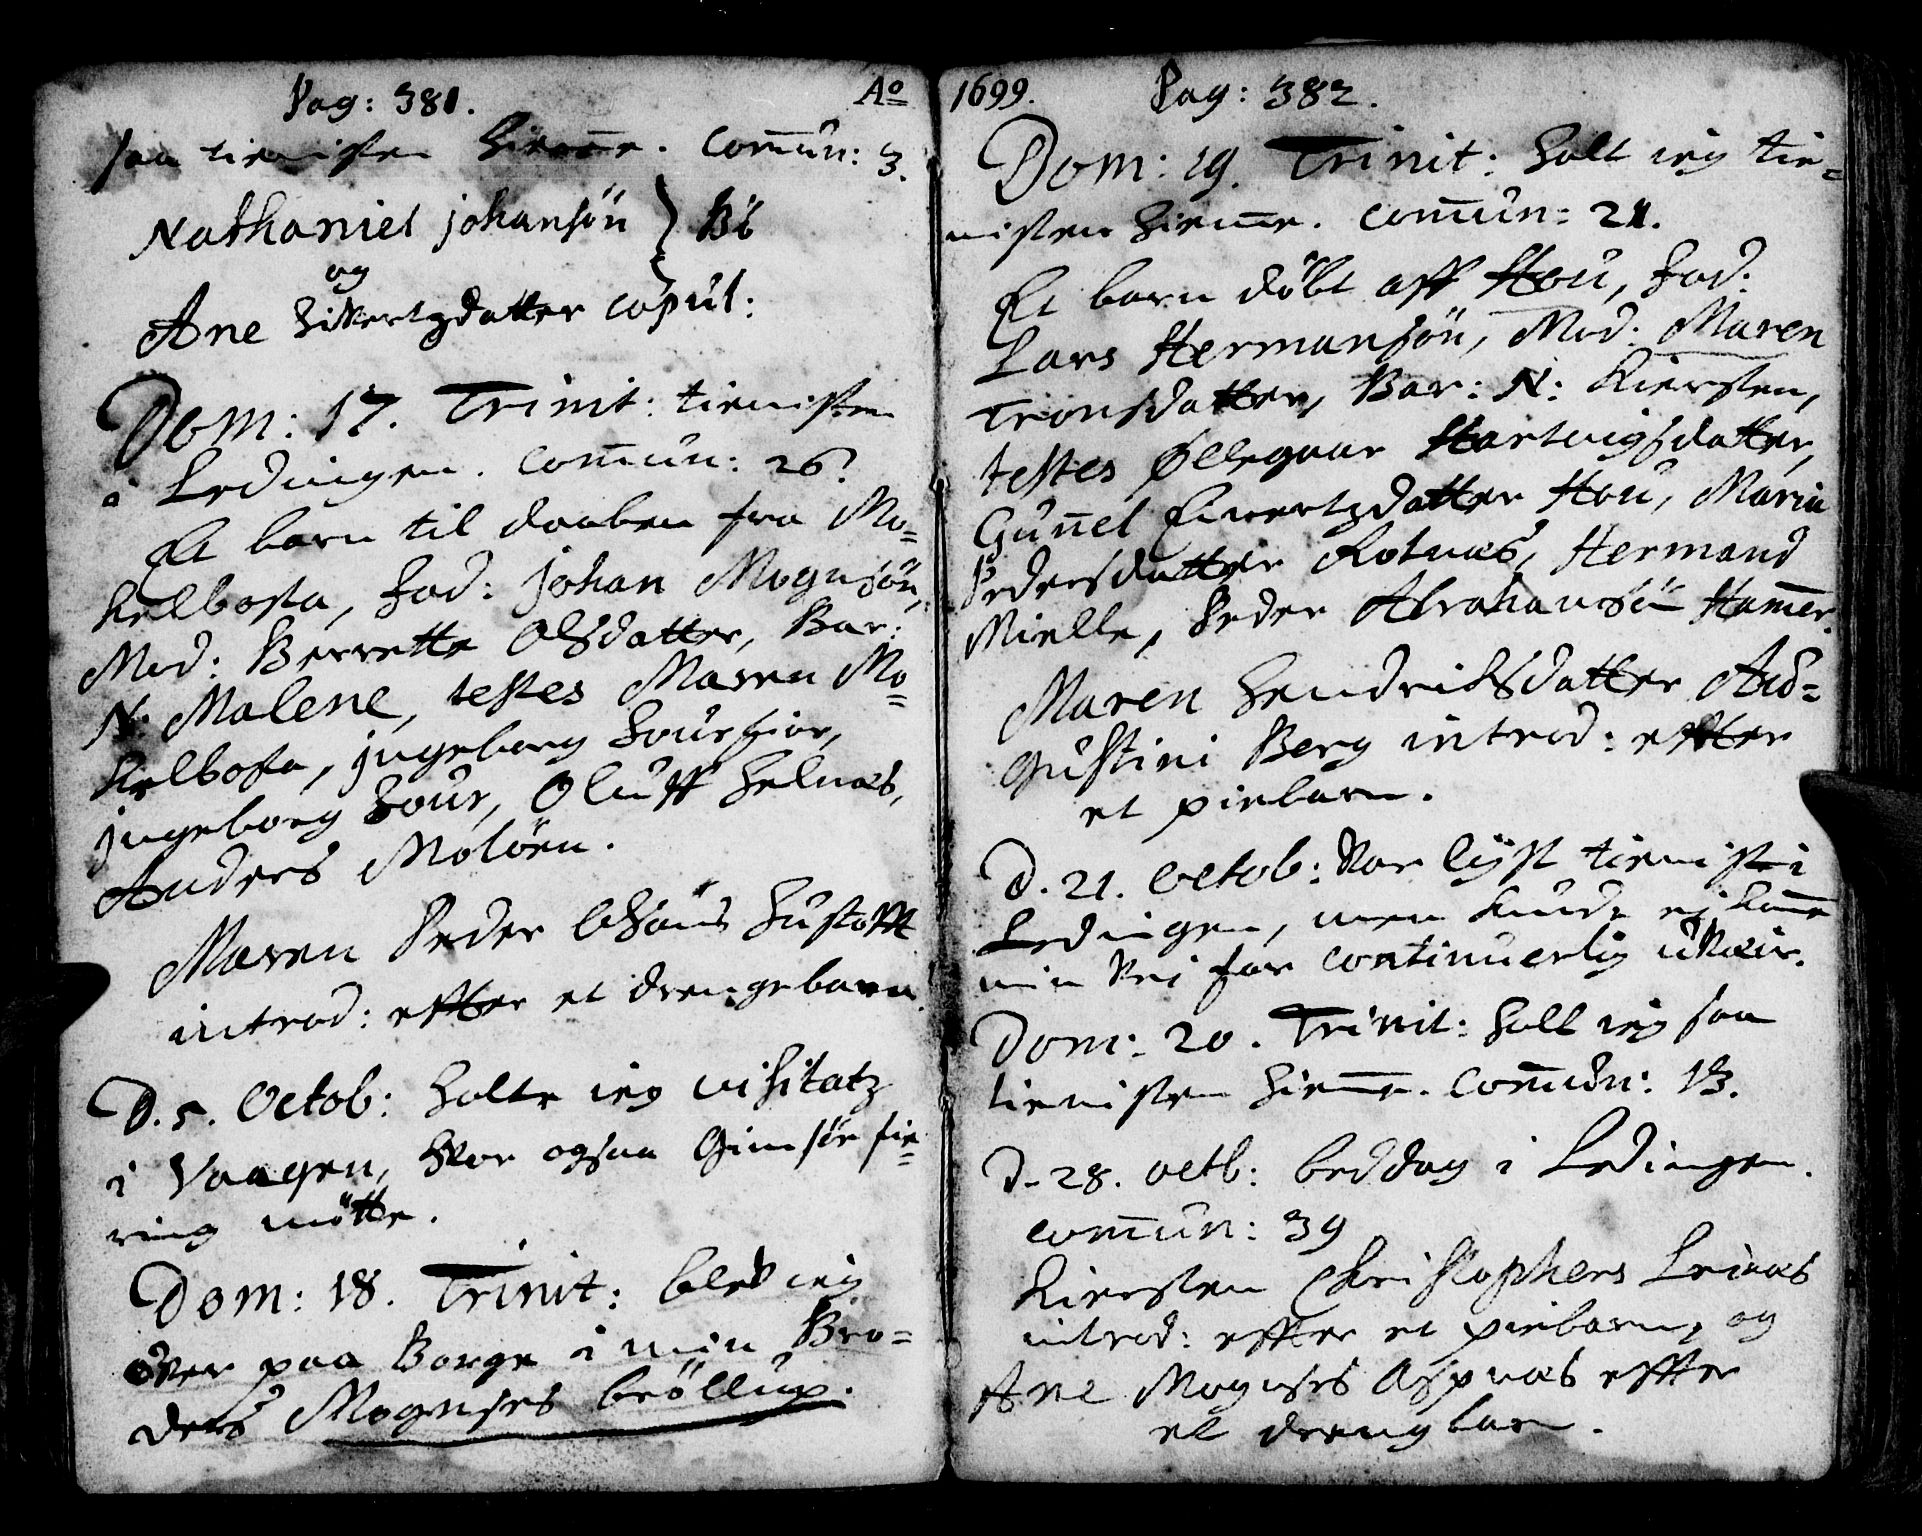 Pag: 381. Ao
saa tienisten hiemme. Com̅un: 3.
Nathaniel Johansön } Bö
og
Ane Sivertzdatter copul:
Dom: 17. Trinit: tienisten
i Lødingen. Com̅un: 26.
Et barn til daaben fra Mo=
kelbosta, Fad: Johan Mognsön,
Mod: Berrette Olsdatter, Bar:
N: Malene, testes Maren Mo=
kelbosta, Jngeborg
Jngeborg Oluff
Anders Molöen.
Maren Peder Olsöns Hustoffr
introd: effter et drengebarn.
D. 5. Octob: Holte ieg visitatz
i Vaagen, hvor ogsaa Gimsöe fie=
ring mötte.
Dom: 18. Trinit: blev ieg
over paa Borge i min Bro=
ders Mognses bröllup.
1699. Pag: 382.
Dom: 19. Trinit: holt ieg tie=
nisten hiemme. Com̅un: 21.
Et barn döbt aff Hou, Fad:
Lars Hermansön, Mod: Maren
Tronsdatter, Bar: N: Kiersten,
testes Øllegaar Hartvigsdatter,
Gun̅el Sivertzdatter Hou, Maria
Pedersdatter Rotnæs, Hermand
Mielle, Peder Abrahamsön Ham̅er.
Maren Hendrichsdatter Au=
gustini Berg introd: effter
et piebarn.
D. 21. Octob: var lyst tienist i
Lødingen, men kunde ej kom̅e
min vei for continuerlig uveir.
Dom: 20. Trinit: holt ieg saa
tienisten hiemme. Com̅un: 13.
D. 28. octb: beddag i Lødingen.
Com̅un: 39
Kiersten Christophers Leinæs
introd: effter et piebarn, og
Ane Mognses Aspnæs effter
et drengbarn.